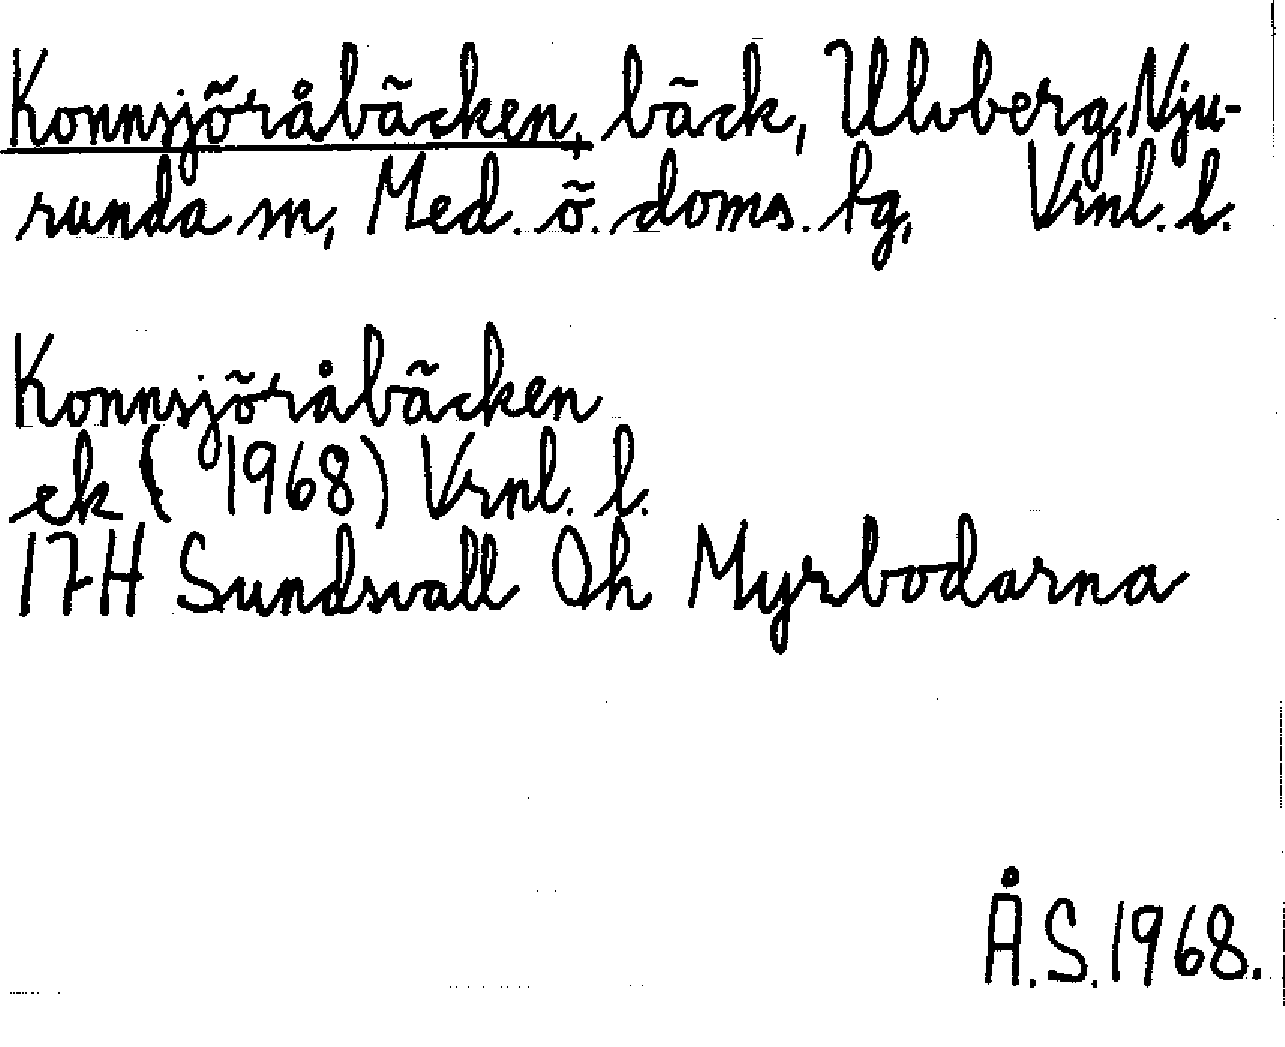 Konnsjöråbäcken, bäck, Ulvberg, Nju-
runda sn, Med. ö. doms. tg, Vrnl. l.
Konnsjöråbäcken
ek ( 1968) Vrnl. l.
17H Sundsvall Öh Myrbodarna
Å.S. 1968.